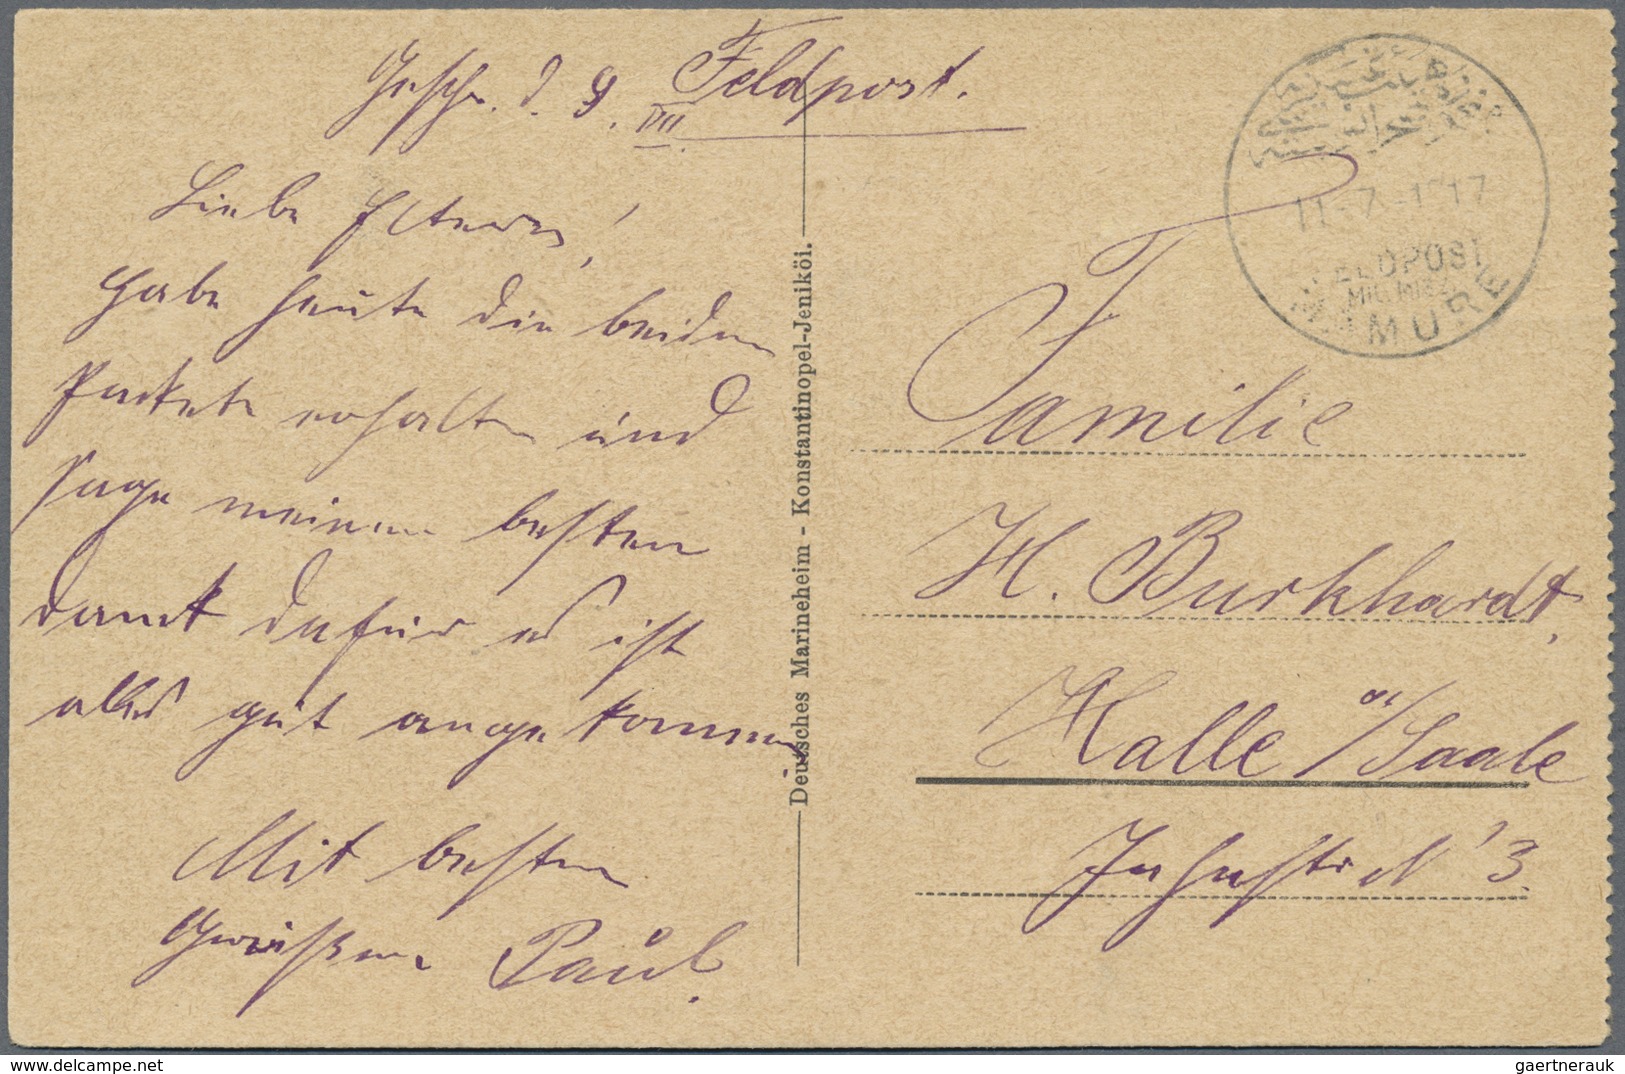 Geschr. d. 9. VII. Feldpost.
Liebe Eltern!
Habe heute die beiden
Packete erhalten und
sage meinen besten
dank dafür es ist
alles gut angekommen.
Mit besten
Grüßen Paul.
Deutsches Marineheim - Konstantinopel-Jeniköi.
11-7-1 17
FELDPOST
MIL. MISS.
MAMURE
Familie
H. Burkhardt,
Halle a/Saale
N 3.
gaertnerauk @ delcampe.net